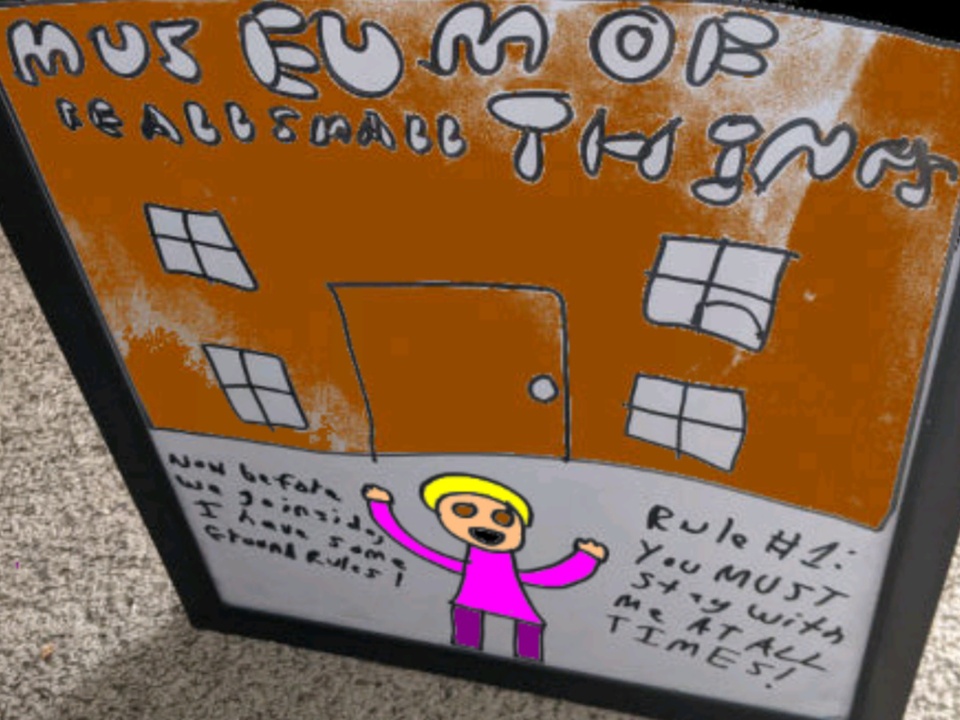 MUSEUM OF
REALLSMALL THINGS
Now before
we go inside,
I have some
Ground Rules!
Rule #1:
You MUST
Stay with
Me AT ALL
TIMES!